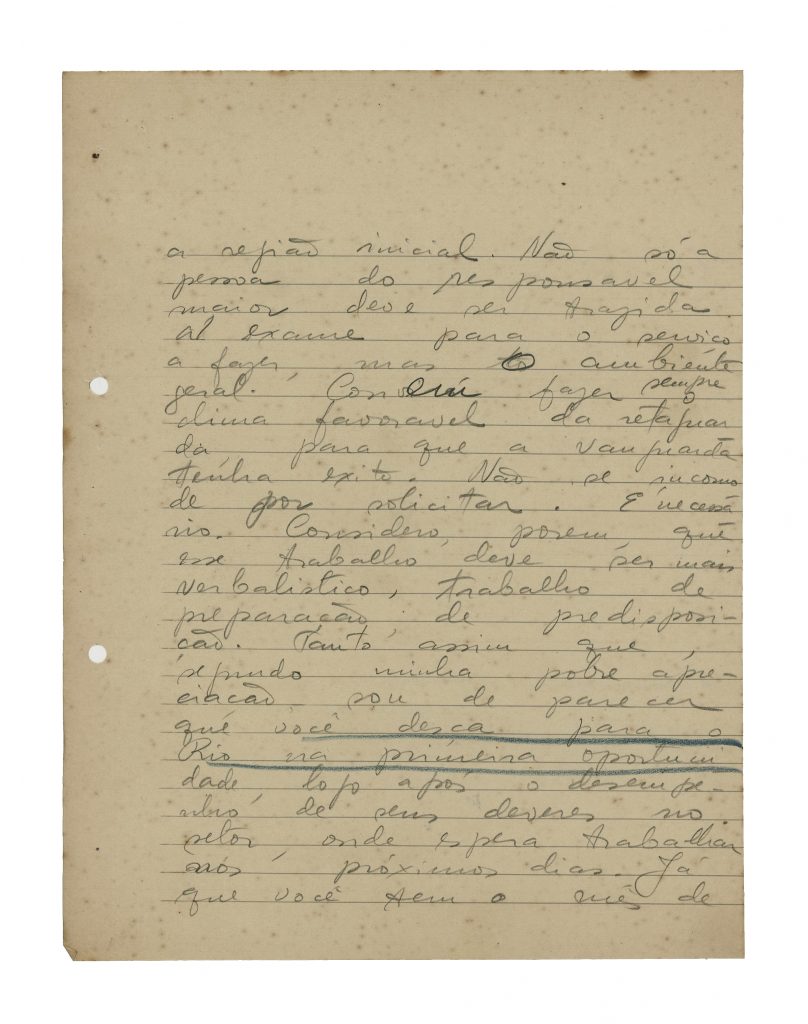 a região inicial. Não só a
pessoa do responsavel
maior deve ser trazida
al exame para o serviço
a fazer, mas o ambiente
geral. Convém fazer sempre o
clima favoravel da retaguar
da, para que a vanguarda
tenha exito. Não se incomo
de por solicitar. É necessá
rio. Considero, porem, que
esse trabalho deve ser mais
verbalistico, trabalho de
preparação, de predisposi-
cão. Tanto assim que,
segundo minha pobre apre-
ciacão sou de parecer
que você desça para o
Rio na primeira oportuni
dade, logo após o desempe-
nho de seus deveres no
setor, onde espera trabalhar
nos próximos dias. Já
que você tem o mês de